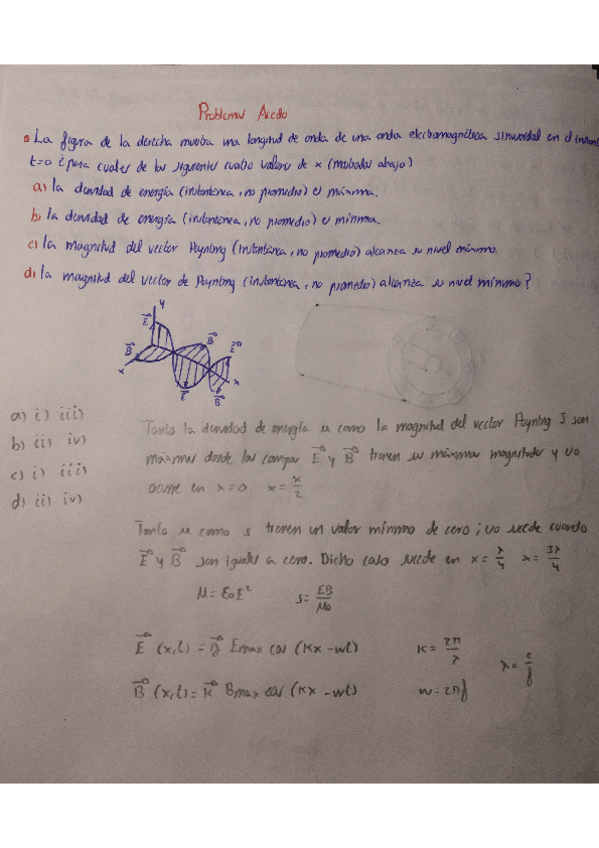 Problemas Acedo
La figura de la derecha muestra una longitud de onda de una onda electromagnética sinusoidal en el instante
t=0 ¿para cuales de los siguientes cuatro valores de x (mostrados abajo)
a) la densidad de energía (instantánea, no promedio) es máxima.
b) la densidad de energía (instantánea, no promedio) es mínima.
c) la magnitud del vector Poynting (instantánea, no promedio) alcanza su nivel máximo
d) la magnitud del vector de Poynting (instantánea, no promedio) alcanza su nivel mínimo?
y
E
B
B
E
x
x
E
B
a) i) iii)
b) ii) iv)
c) i) iii)
d) ii) iv)
Tanto la densidad de energía u como la magnitud del vector Poynting S son
máximas donde los campos E y B tienen su máxima magnitudes y eso
ocurre en x=0 x=λ/2
Tanto u como s tienen un valor mínimo de cero; eso sucede cuando
E y B son iguales a cero. Dicho caso sucede en x=λ/4 x=3λ/4
μ = ε0E² s=EB/μ0
E (x,t) = j Emax cos (Kx - wt) K = 2π/λ
λ = c/f
B (x,t) = K Bmax cos (Kx - wt) w = 2πf